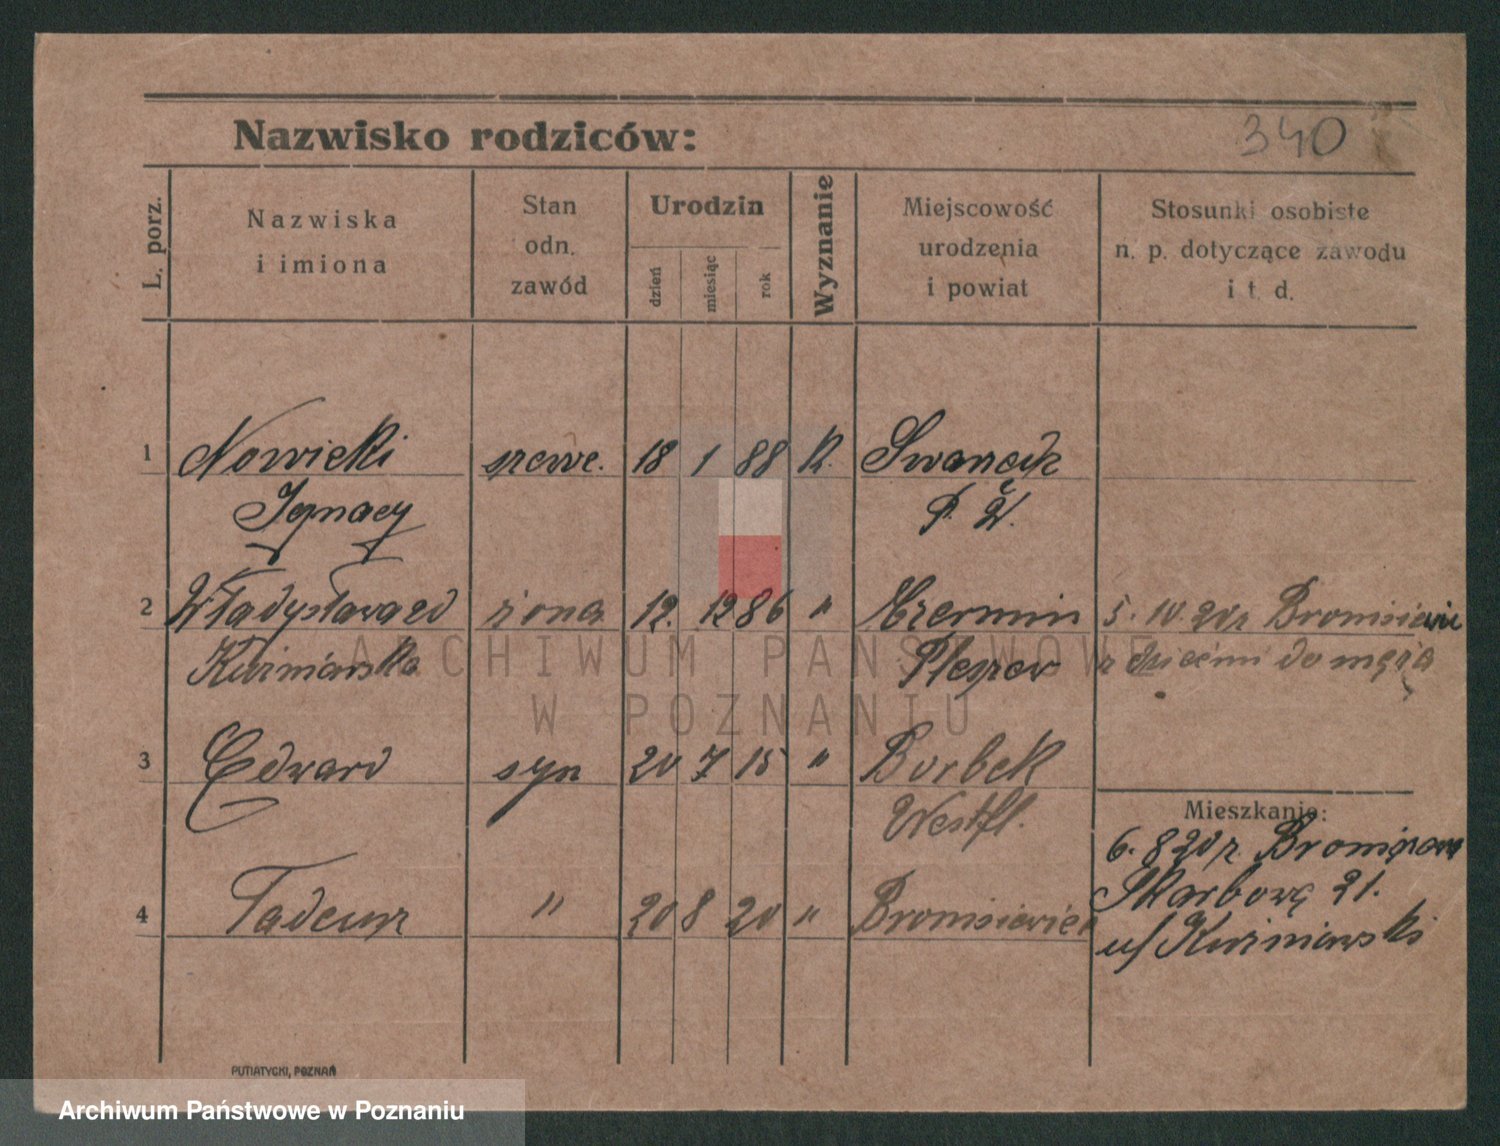 Nazwisko rodziców:
340
L. porz.
Nazwiska
i imiona
Stan
odn.
zawód
Urodzin
dzień
miesiąc
rok
Wyznanie
Miejscowość
urodzenia
i powiat
Stosunki osobiste
n. p. dotyczące zawodu
i t. d.
1 Nowicki 18 1 88 K.
Ignacy
2 Władysława zd żona 12. 12 86 " Czermin 5. 10. 20 r
Kuźniarska Pleszew z dziećmi do męża
3 Edward syn 20 7 15 " Borbek
Westfl.
Mieszkanie:
6. 8 20 r.
4 Tadeusz " 20 8 20 " Skarbowa 21.
u/ Kuźniarski
ARCHIWUM PAŃSTWOWE
W POZNANIU
PUTIATYCKI, POZNAŃ
Archiwum Państwowe w Poznaniu